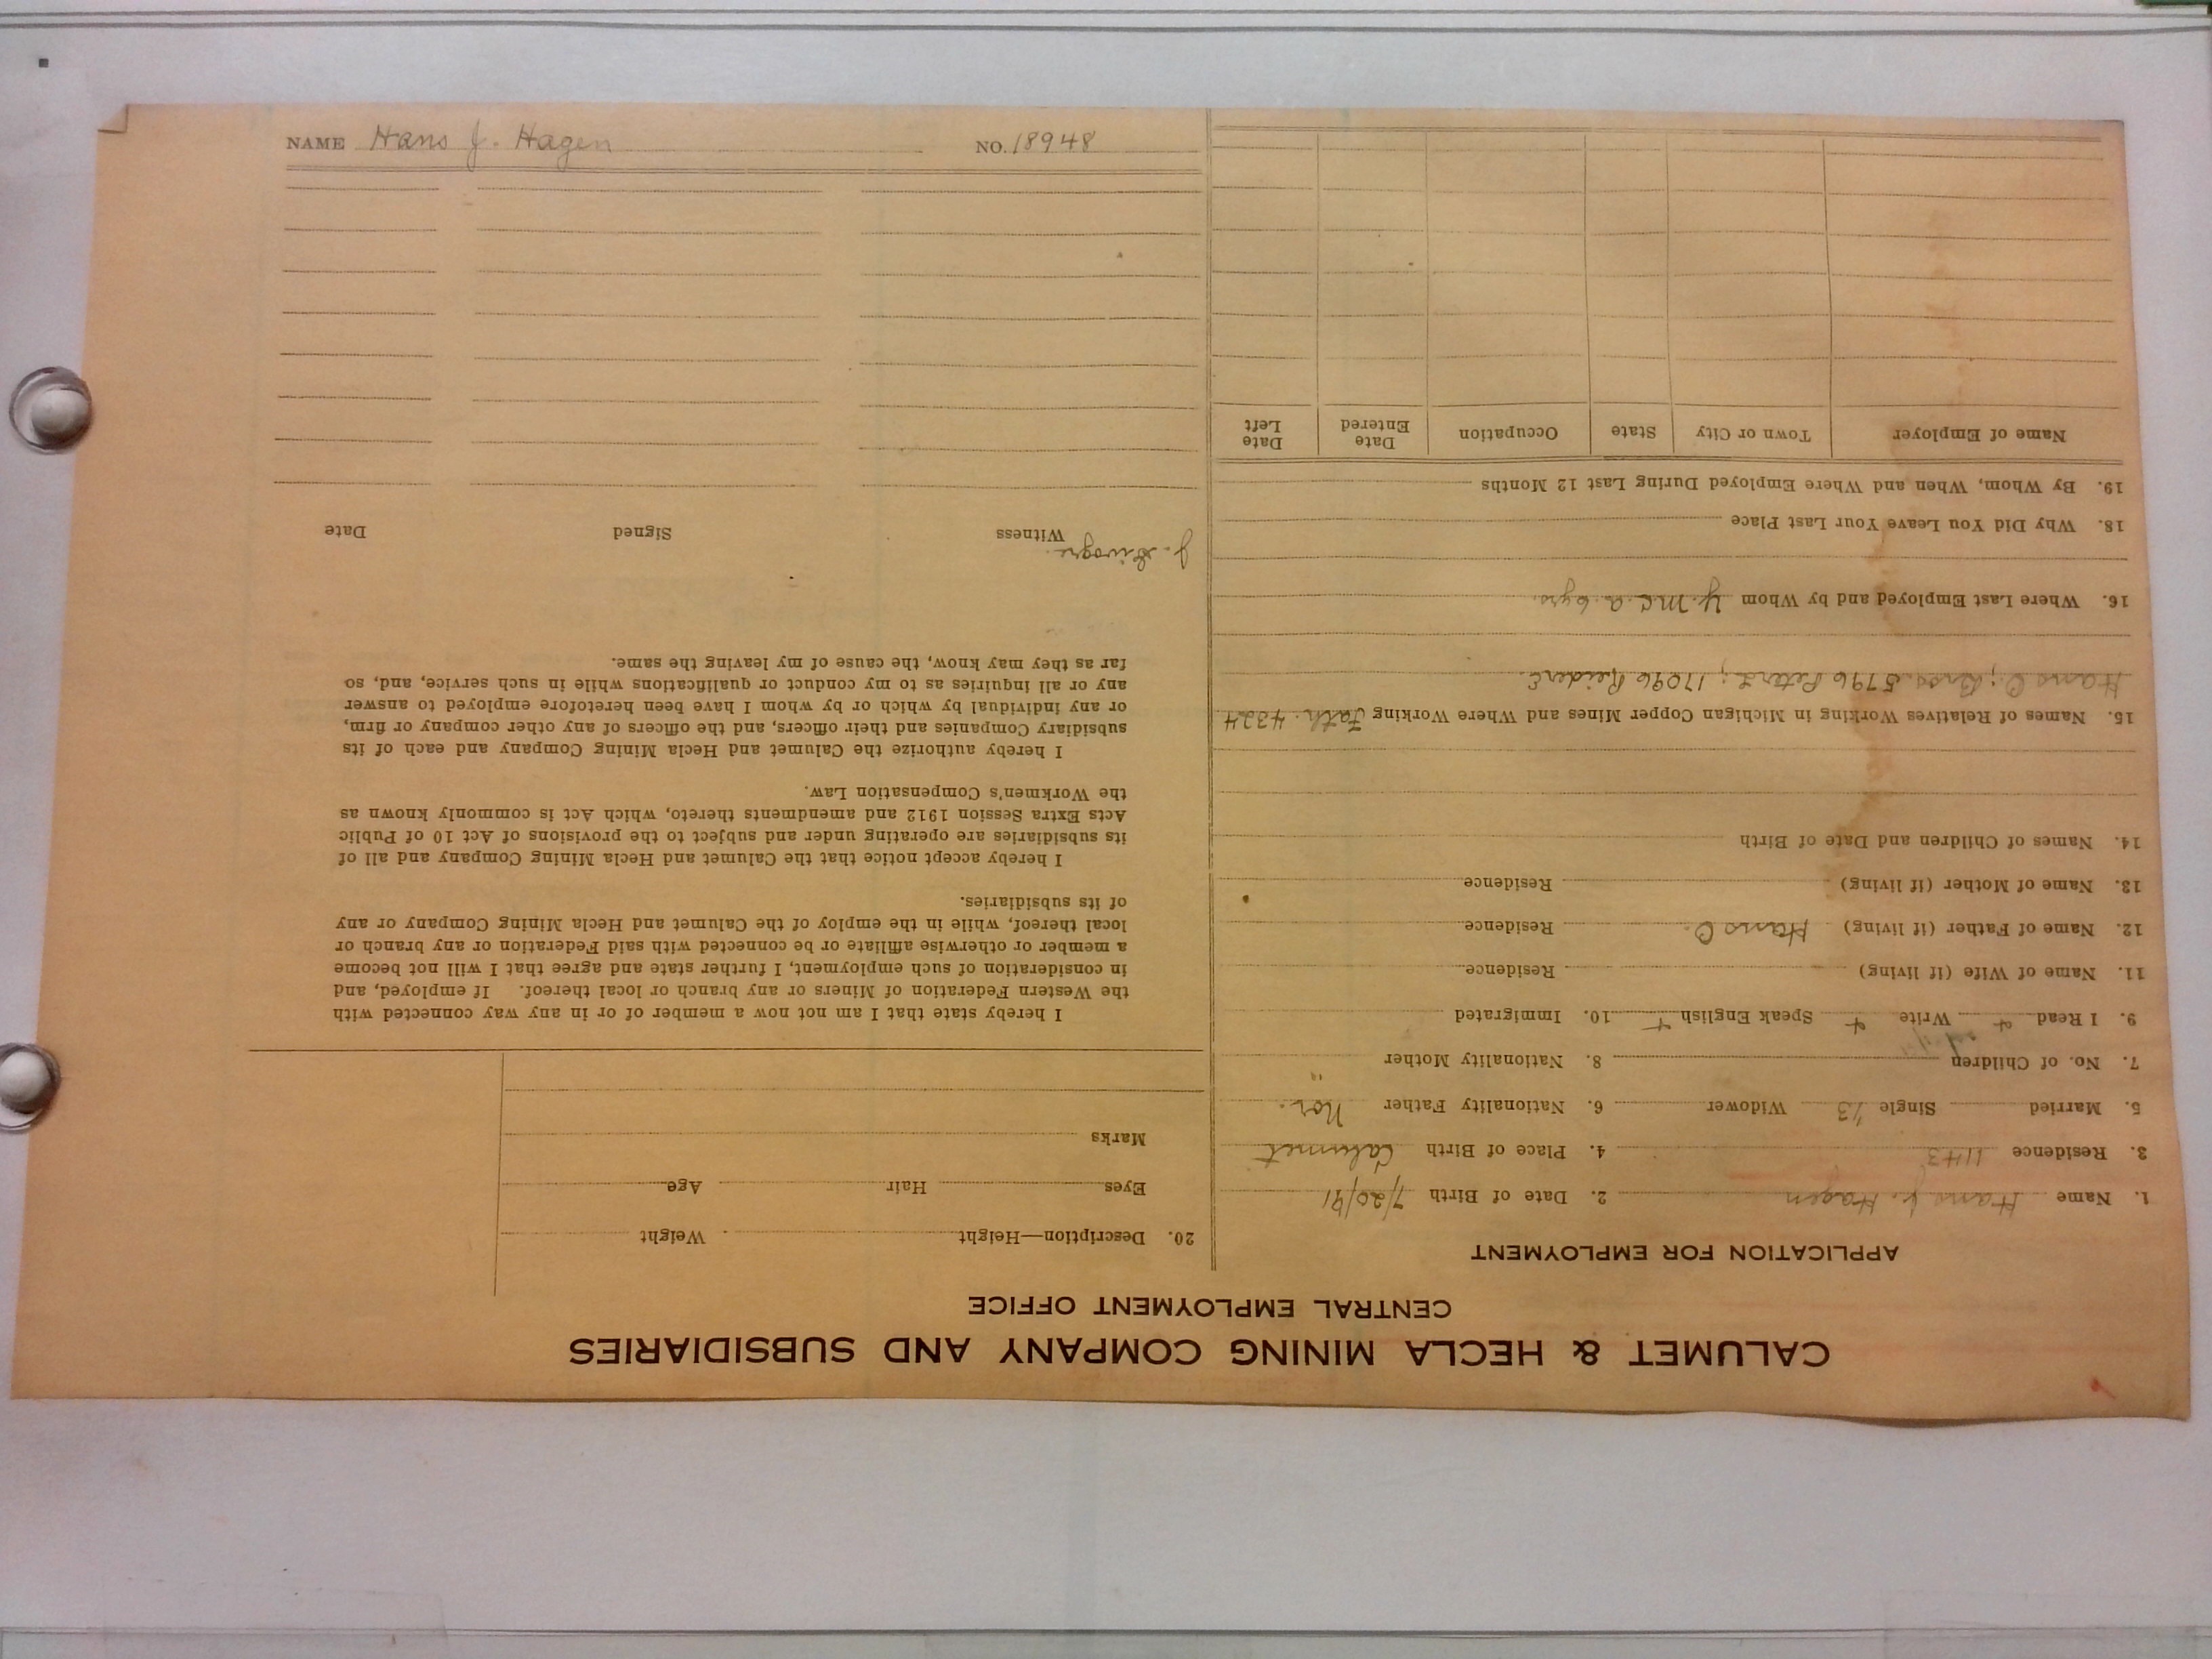 NAME Hans J. Hagen NO. 18948
CALUMET & HECLA MINING COMPANY AND SUBSIDIARIES
CENTRAL EMPLOYMENT OFFICE
APPLICATION FOR EMPLOYMENT
1. Name Hans J. Hagen 2. Date of Birth 7/20/91
3. Residence 1143 4. Place of Birth Calumet
5. Married Single /3 Widower 6. Nationality Father Nor.
7. No. of Children 8. Nationality Mother "
9. I Read + Write + Speak English + 10. Immigrated
11. Name of Wife (if living) Residence
12. Name of Father (if living) Hans O. Residence
13. Name of Mother (if living) Residence
14. Names of Children and Date of Birth
15. Names of Relatives Working in Michigan Copper Mines and Where Working Fath. 4324
Hans O; Bros. 5796 Peter L; 17096 Reider E.
16. Where Last Employed and by Whom Y.M.C.A. 6 yrs.
18. Why Did You Leave Your Last Place
19. By Whom, When and Where Employed During Last 12 Months
Name of Employer Town or City State Occupation Date Entered Date Left
20. Description—Height Weight
Eyes Hair Age
Marks
I hereby state that I am not now a member of or in any way connected with
the Western Federation of Miners or any branch or local thereof. If employed, and
in consideration of such employment, I further state and agree that I will not become
a member or otherwise affiliate or be connected with said Federation or any branch or
local thereof, while in the employ of the Calumet and Hecla Mining Company or any
of its subsidiaries.
I hereby accept notice that the Calumet and Hecla Mining Company and all of
its subsidiaries are operating under and subject to the provisions of Act 10 of Public
Acts Extra Session 1912 and amendments thereto, which Act is commonly known as
the Workmen's Compensation Law.
I hereby authorize the Calumet and Hecla Mining Company and each of its
subsidiary Companies and their officers, and the officers of any other company or firm,
or any individual by which or by whom I have been heretofore employed to answer
any or all inquiries as to my conduct or qualifications while in such service, and, so
far as they may know, the cause of my leaving the same.
J.
Witness Signed Date